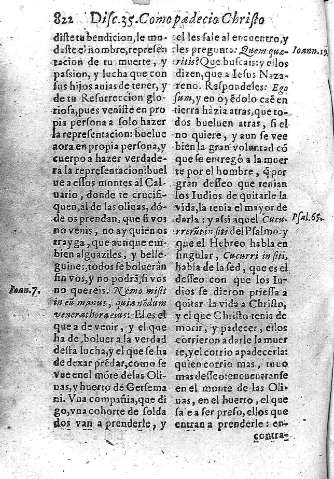 822 Disc. 35. Como padecio Christo
diste tu bendicion, le mo-
daste el nombre, represen
tacion de tu muerte, y
passion, y lucha que con
sus hijos auias de tener, y
de tu Resurreccion glo-
riosa, pues veniste en pro
pia persona a solo hazer
la representacion: buelue
aora en propia persona, y
cuerpo a hazer verdade-
ra la representacion: buel
ue a estos montes al Cal-
uario, donde te crucifi-
quen, al de las oliuas, dó-
de os prendan, que si vos
no venis, no ay quien os
trayga, que aunque em-
bien alguaziles, y belle-
guines, todos se bolueràn
sin vos, y no podrà si vos
no quereis. Nemo misit
in eū manus, quia nōdum
venerat hora eius. El es el
que a de venir, y el que
ha de boluer a la verdad
desta lucha, y el que se ha
de dexar prēdar, como se
vee en el mōte de las Oli
uas, y huerto de Getsema
ni. Vna compañia, que di
go, vna cohorte de solda
dos van a prenderle, y
Ioan. 7.
el les sale al encuentro, y
les pregunta: Quem quæ-
ritis? Que buscais: y ellos
dizen, que a Iesus Naza-
reno. Respondeles: Ego
sum, y en oyēdolo caē en
tierra hàzia atras, que to-
dos bueluen atras, si el
no quiere, y aun se vee
bien la gran voluntad cō
que se entregò a la muer
te por el hombre, q̃ por
gran desseo que tenian
los Iudios de quitarle la
vida, la tenia el mayor de
darla: y assi aquel Cucur-
rerūt in siti del Psalmo: y
que el Hebreo habla en
singular, Cucurri in siti,
habla de la sed, que es el
desseo con que los Iu-
dios se dieron priessa a
quitar la vida a Christo,
y el que Christo tenia de
morir, y padecer, ellos
corrieron a darle la muer
te, y el corrio a padecerla:
quien corrio mas, tuuo
mas desseo: encuentranse
en el monte de las Oli
uas, en el huerto, el que
sale a ser preso, ellos que
entran a prenderle: en-
contra-
Ioann. 19.
Psal. 65.